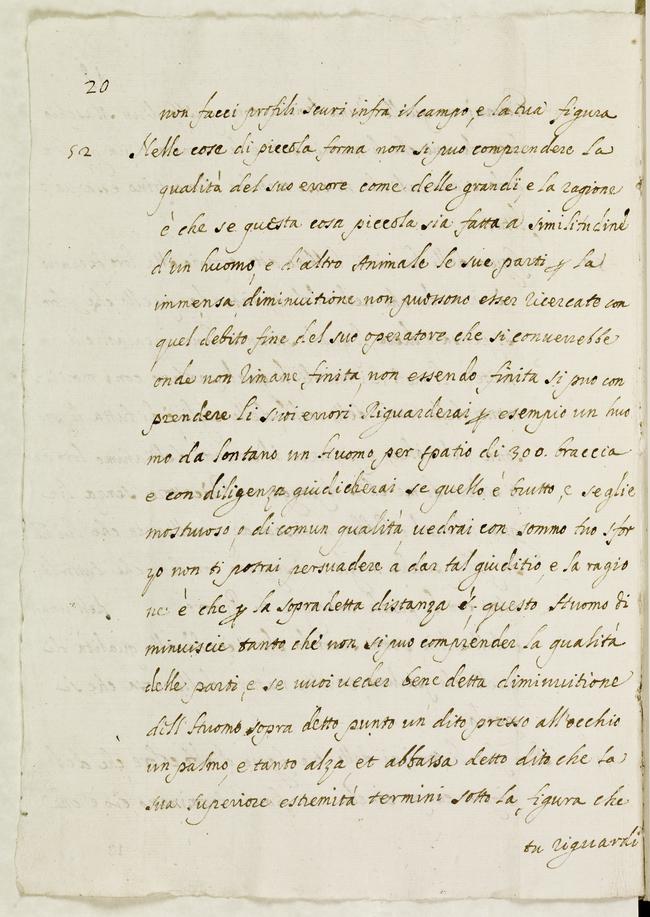 20
non facci profili scuri infra il campo, e la tua figura
52 Nelle cose di piccola forma non si può comprendere la
qualità del suo errore come delle grandi, e la ragione
è che se questa cosa piccola sia fatta à similitudine
d'un huomo, e d'altro Animale le sue parti ꝑ la
immensa diminuitione non puossono esser ricercate con
quel debito fine del suo operatore, che si converrebbe
onde non rimane finita, non essendo finita si può con
prendere li suoi errori Riguarderai ꝑ esempio un huo
mo da lontano un Huomo per spatio di 300. braccia
e con diligenza giudicherai se quello è brutto, e se glie
mostuoso, o di comun qualità, vedrai con sommo tuo sfor
zo non ti potrai persuadere à dar tal giuditio, e la ragio
ne è che ꝑ la sopradetta distanza è questo Huomo di
minuiscie tanto che non si può comprender la qualità
delle parti, e se vuoi veder bene detta diminuitione
dell Huomo sopra detto punto un dito presso all'occhio
un palmo, e tanto alza et abbassa detto dito che la
sua superiore estremità termini sotto la figura che
tu riguardi